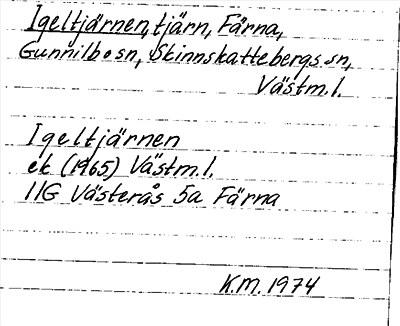 Igeltjärnen, tjärn, Färna,
Gunnilbo sn, Skinnskattebergs sn,
Västm.l.
Igeltjärnen
ek (1965) Västm.l.
11G Västerås 5a Färna
K.M. 1974